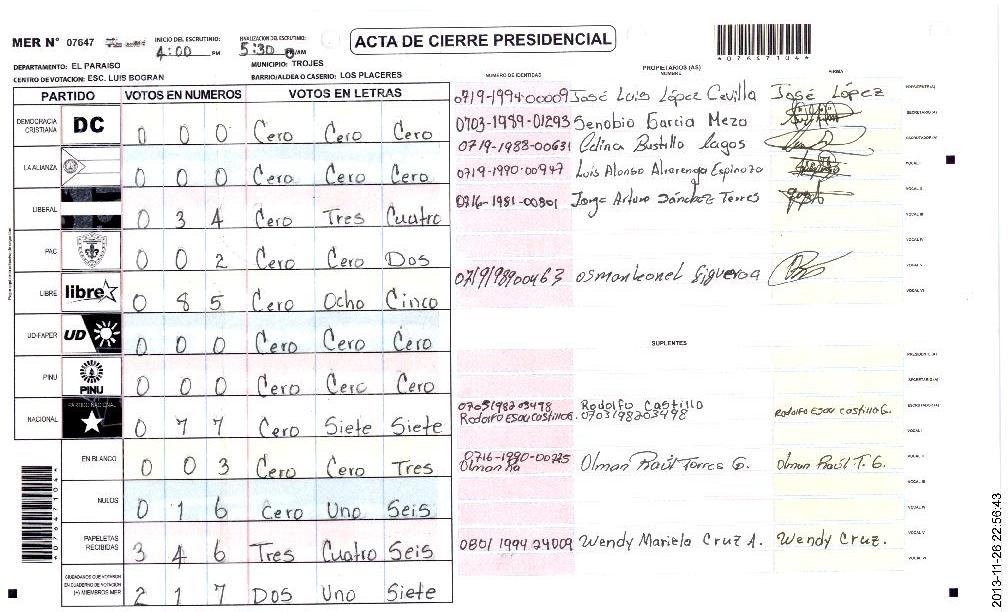 MER N° 07647
INICIO DEL ESCRUTINIO:
4:00 PM
FINALIZACION DEL ESCRUTINIO:
5:30 AM
ACTA DE CIERRE PRESIDENCIAL
*076471044*
DEPARTAMENTO: EL PARAISO
MUNICIPIO: TROJES
CENTRO DE VOTACION: ESC. LUIS BOGRAN
BARRIO/ALDEA O CASERIO: LOS PLACERES
PARTIDO VOTOS EN NUMEROS VOTOS EN LETRAS
DEMOCRACIA CRISTIANA DC 0 0 0 Cero Cero Cero
LA ALIANZA 0 0 0 Cero Cero Cero
LIBERAL 0 3 4 Cero Tres Cuatro
PAC 0 0 2 Cero Cero Dos
LIBRE libre 0 8 5 Cero Ocho Cinco
UD-FAPER UD 0 0 0 Cero Cero Cero
PINU PINU 0 0 0 Cero Cero Cero
NACIONAL PARTIDO NACIONAL 0 7 7 Cero Siete Siete
EN BLANCO 0 0 3 Cero Cero Tres
NULOS 0 1 6 Cero Uno Seis
PAPELETAS RECIBIDAS 3 4 6 Tres Cuatro Seis
CIUDADANOS QUE VOTARON EN CUADERNO DE VOTACION (+) MIEMBROS MER 2 1 7 Dos Uno Siete
PROPIETARIOS (AS)
NUMERO DE IDENTIDAD NOMBRE FIRMA
0719-1994-00009 José Luis López Cevilla José López PRESIDENTE (A)
0703-1989-01293 Senobio Garcia Meza SECRETARIO (A)
0719-1988-00631 Edina Bustillo Lagos ESCRUTADOR (A)
0719-1990-00947 Luis Alonso Alvarenga Espinoza VOCAL I
0716-1981-00801 Jorge Arturo Sánchez Torres VOCAL II
VOCAL III
VOCAL IV
VOCAL V
0719198900463 osmanleonel figueroa
VOCAL VI
SUPLENTES
PRESIDENTE (A)
SECRETARIO (A)
0703198203498 Rodolfo Castillo ESCRUTADOR (A)
Rodolfo ESAU CastilloG. 0703198203498 Rodolfo ESAU Castillo G.
VOCAL I
0716-1990-00225 Olman Raúl Torres G. Olman Raúl T. G. VOCAL II
Olman Ra
VOCAL III
VOCAL IV
0801 1994 24009 Wendy Mariela Cruz A. Wendy Cruz. VOCAL V
VOCAL VI
*076471044*
2013-11-26 22:56:43